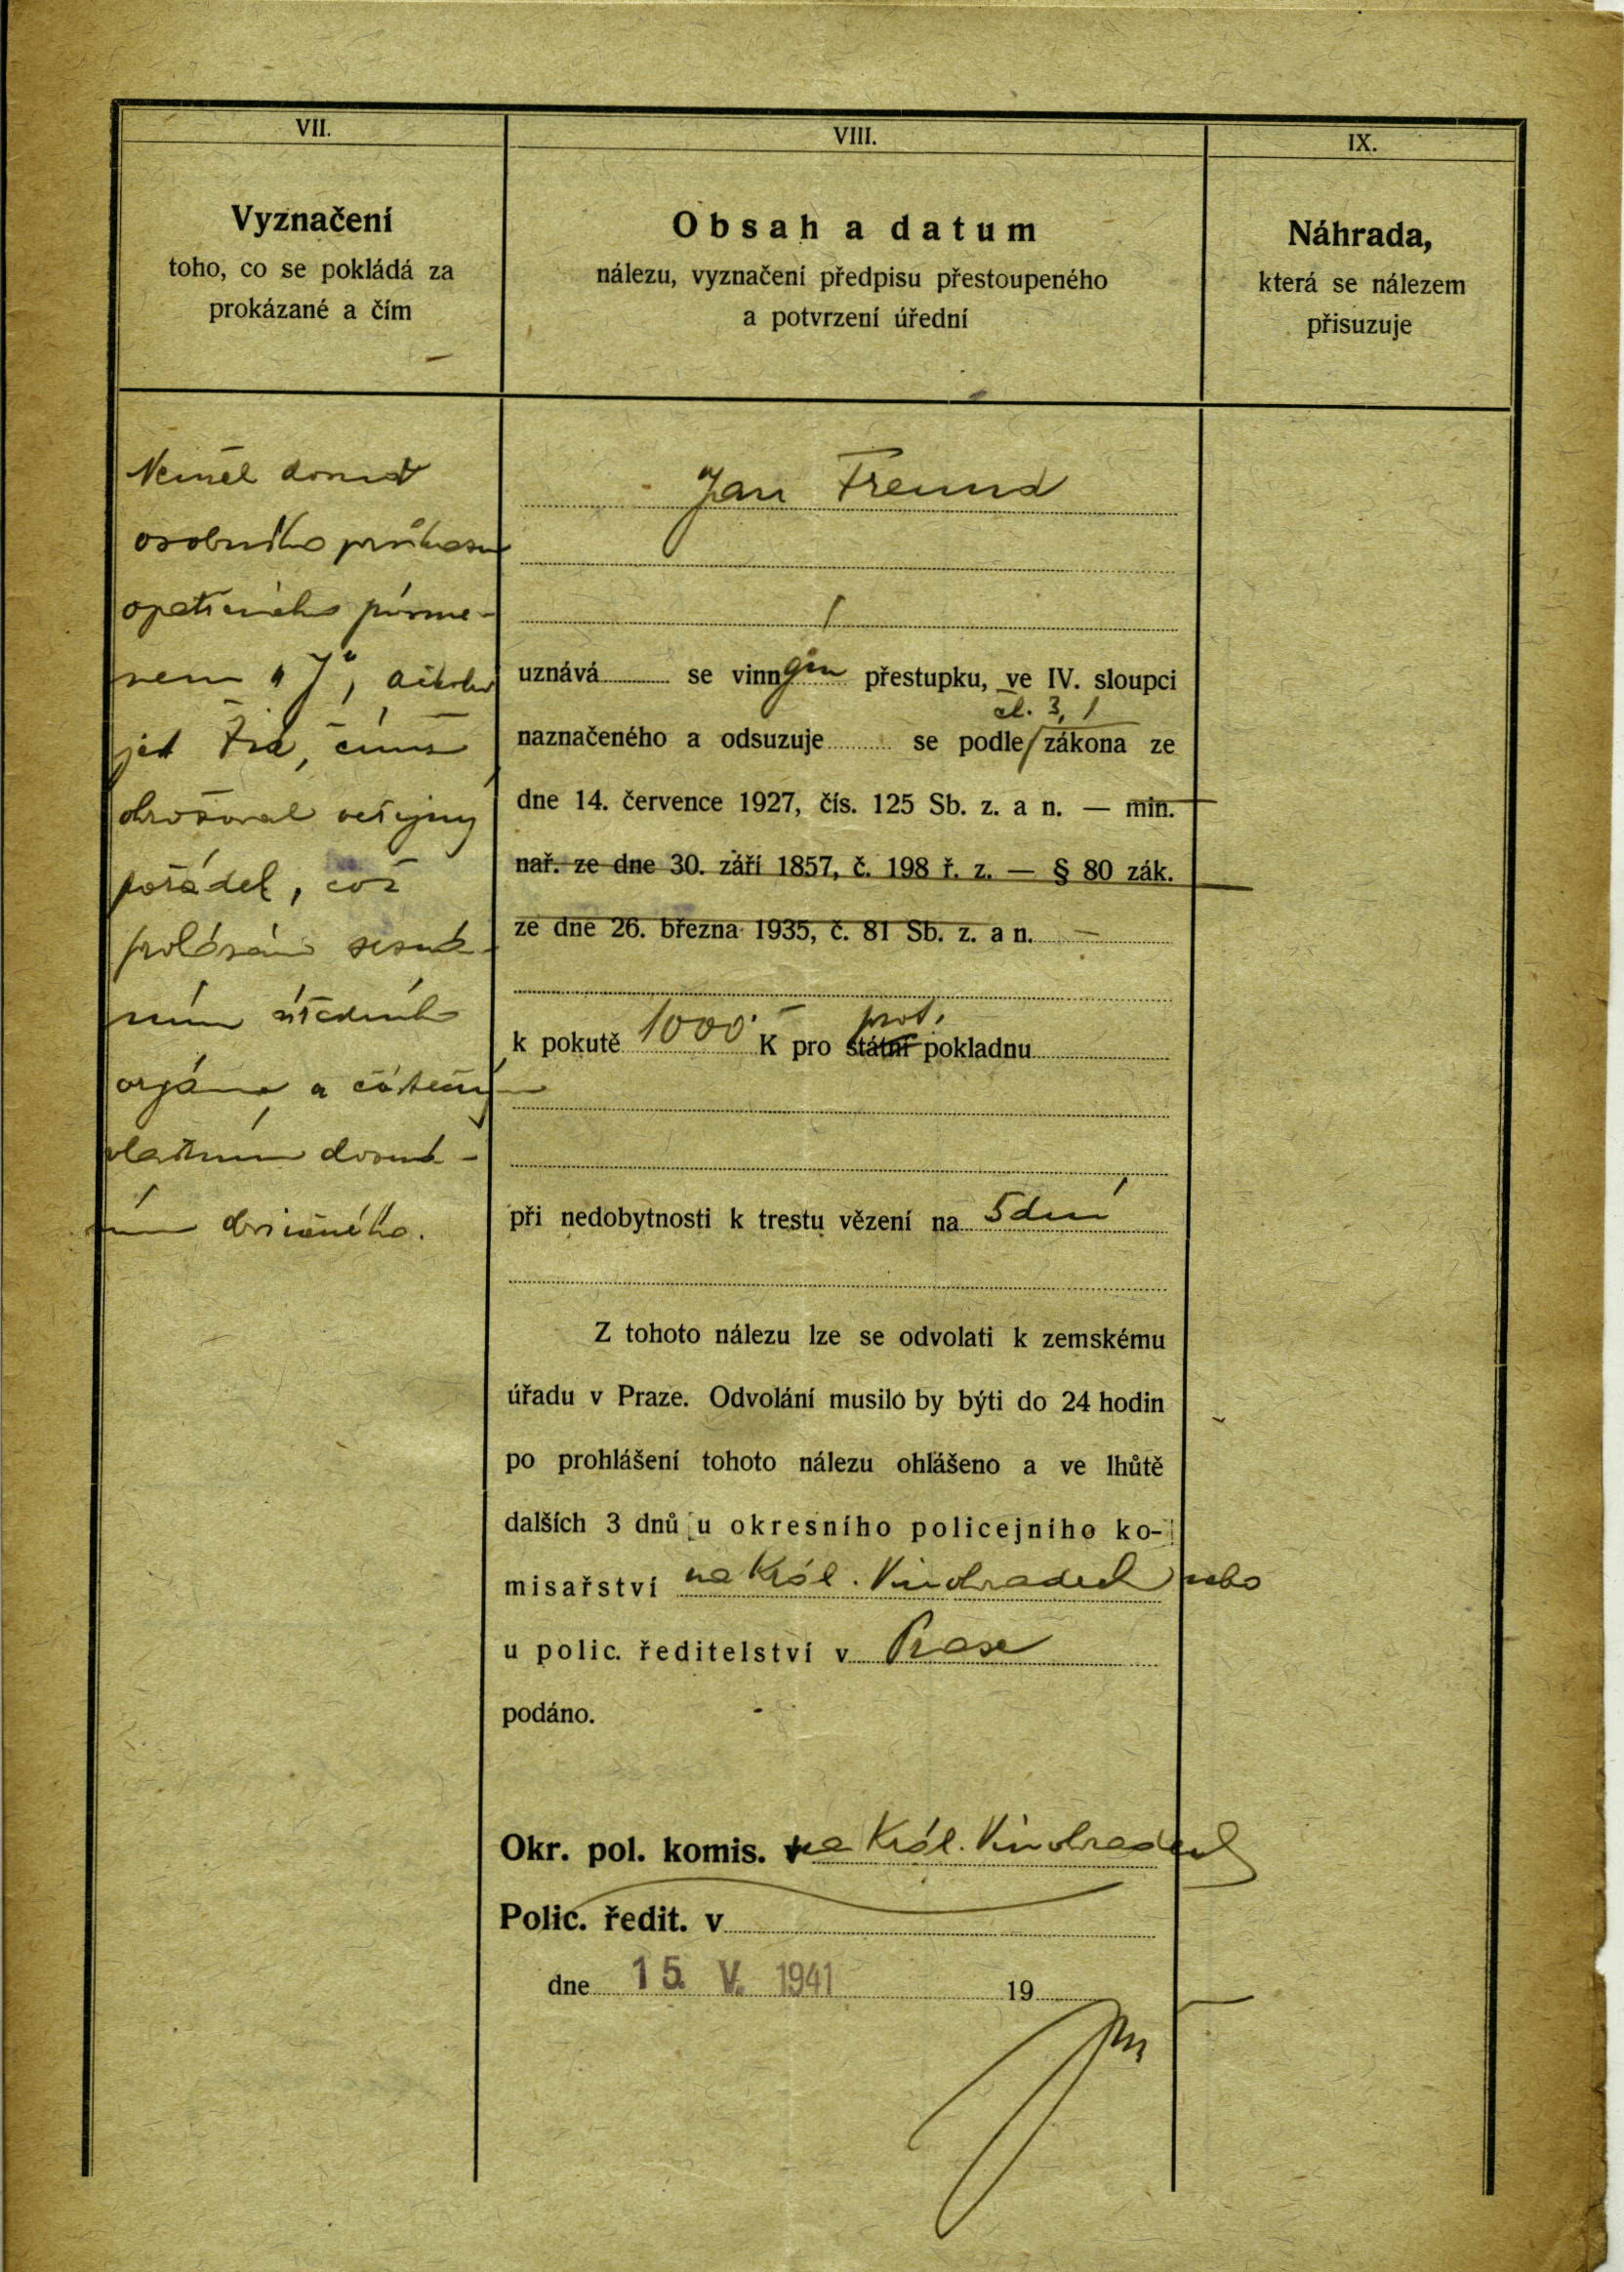 VII.
Vyznačení
toho, co se pokládá za
prokázané a čím
Neměl dosud
osobního průkazu
opatřeného písme-
nem „J“, ačkoliv
jest žid, čímž
ohrožoval veřejný
pořádek, což
prokázáno sezná-
ním úředního
orgánu a částečný
vlastním dozná-
ním obviněného.
VIII.
Obsah a datum
nálezu, vyznačení předpisu přestoupeného
a potvrzení úřední
Jan Freund
uznává se vinným přestupku, ve IV. sloupci
čl. 3, 1
naznačeného a odsuzuje se podle zákona ze
dne 14. července 1927, čís. 125 Sb. z. a n. — min.
nař. ze dne 30. září 1857, č. 198 ř. z. — § 80 zák.
ze dne 26. března 1935, č. 81 Sb. z. a n.
prot.
k pokutě 1000 K pro státní pokladnu
při nedobytnosti k trestu vězení na 5 dní
Z tohoto nálezu lze se odvolati k zemskému
úřadu v Praze. Odvolání musilo by býti do 24 hodin
po prohlášení tohoto nálezu ohlášeno a ve lhůtě
dalších 3 dnů u okresního policejního ko-
misařství na Král. Vinohradech nebo
u polic. ředitelství v Praze
podáno.
Okr. pol. komis. na Král. Vinohradech
Polic. ředit. v
dne 15. V. 1941 19
IX.
Náhrada,
která se nálezem
přisuzuje